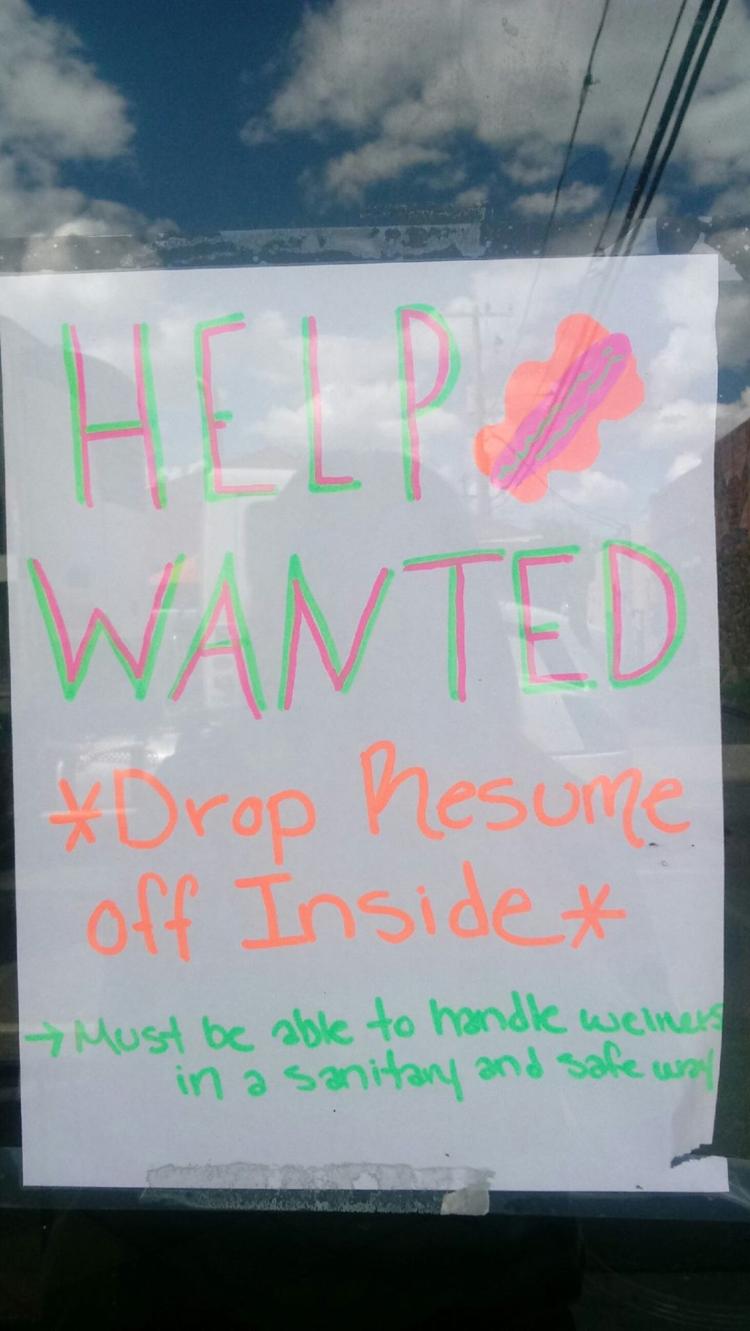 HELP
WANTED
*Drop Resume
off Inside*
→ Must be able to handle weiners
in a sanitary and safe way